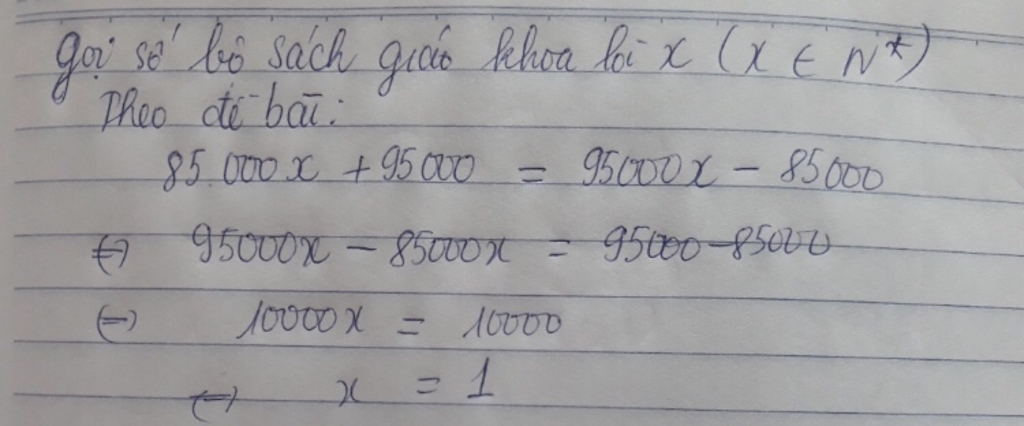 Gọi số bộ sách giáo khoa là x (x ∈ N*)
Theo đề bài:
85.000x + 95000 = 95000x - 85000
<=> 95000x - 85000x = 95000 - 85000
<=> 10000x = 10000
<=> x = 1